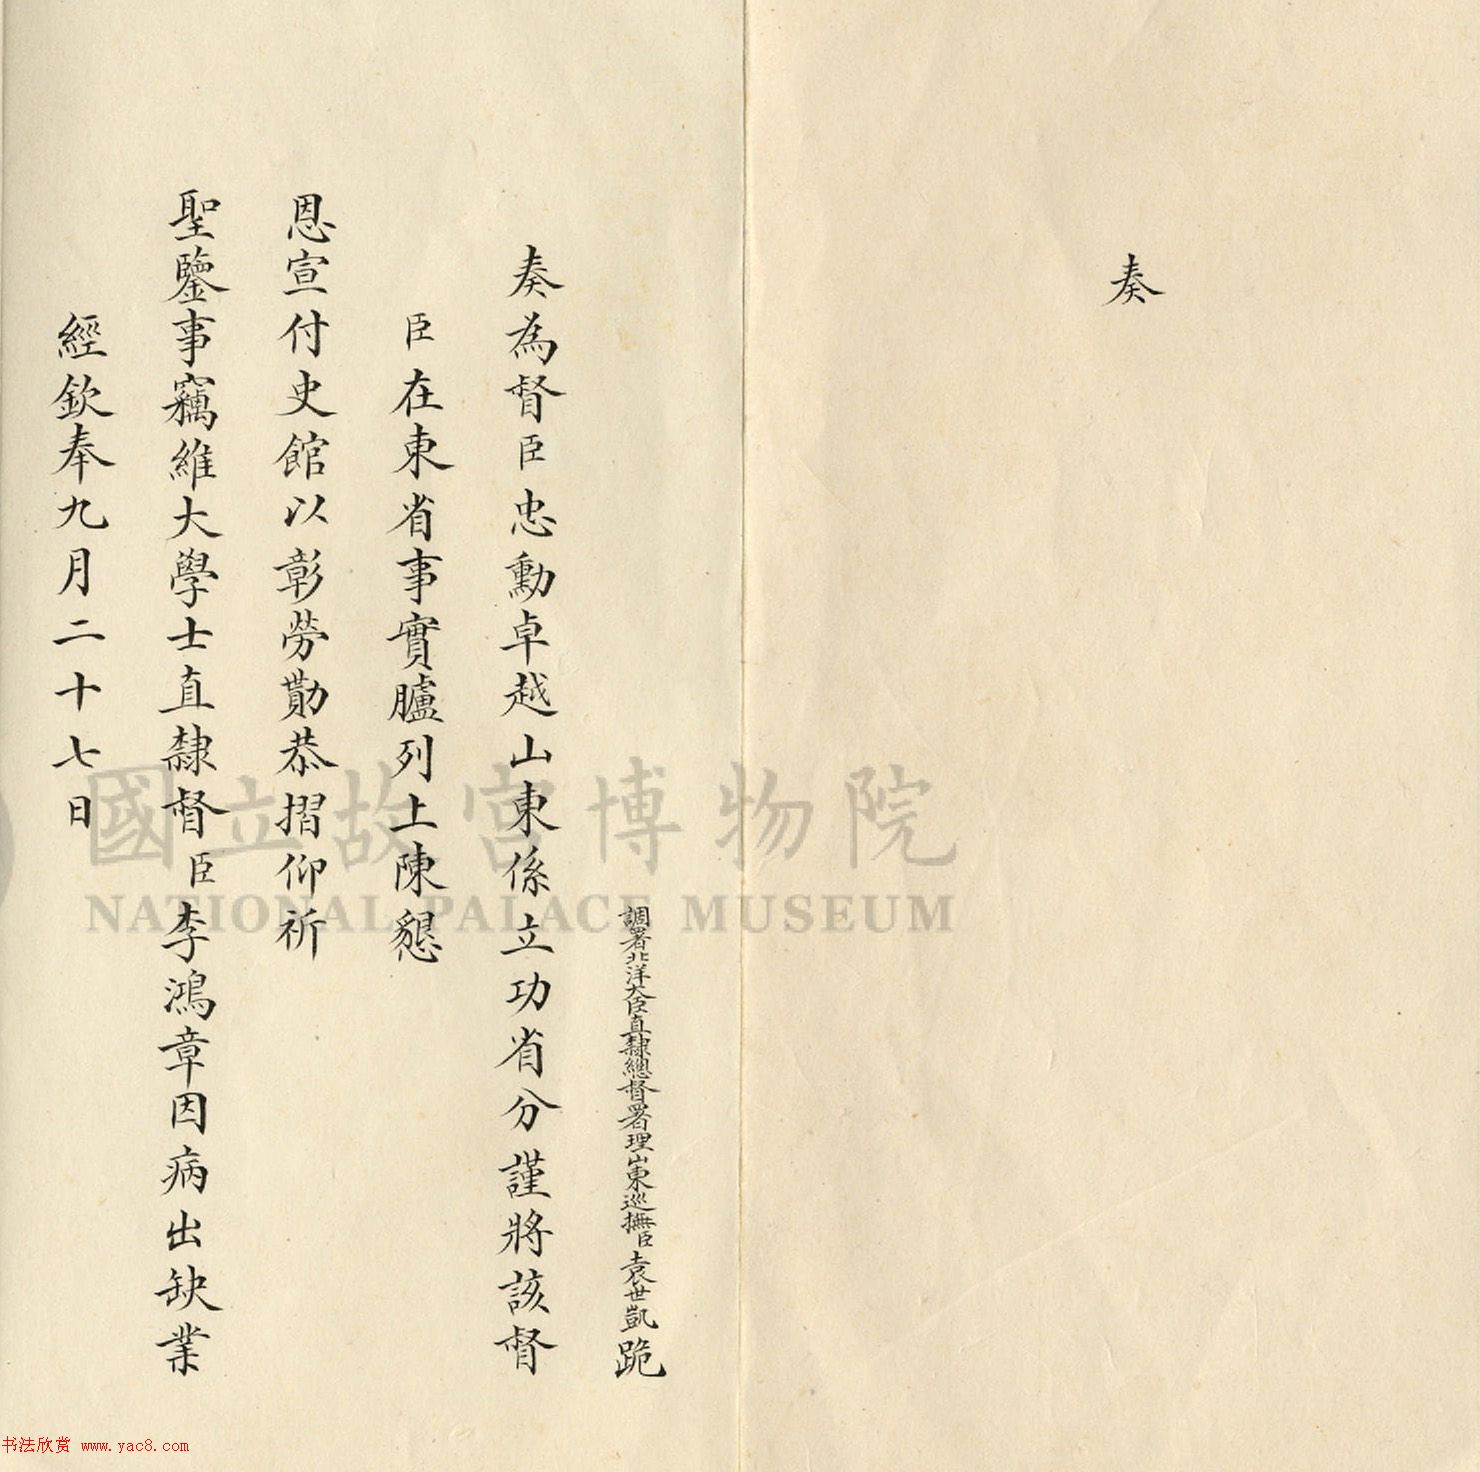 奏
調署北洋大臣直隸總督署理山東巡撫臣袁世凱跪
奏為督臣忠勳卓越山東係立功省分謹將該督
臣在東省事實臚列上陳懇
恩宣付史館以彰勞勩恭摺仰祈
聖鑒事竊維大學士直隸督臣李鴻章因病出缺業
經欽奉九月二十七日
國立故宮博物院
NATIONAL PALACE MUSEUM
书法欣赏 www.yac8.com